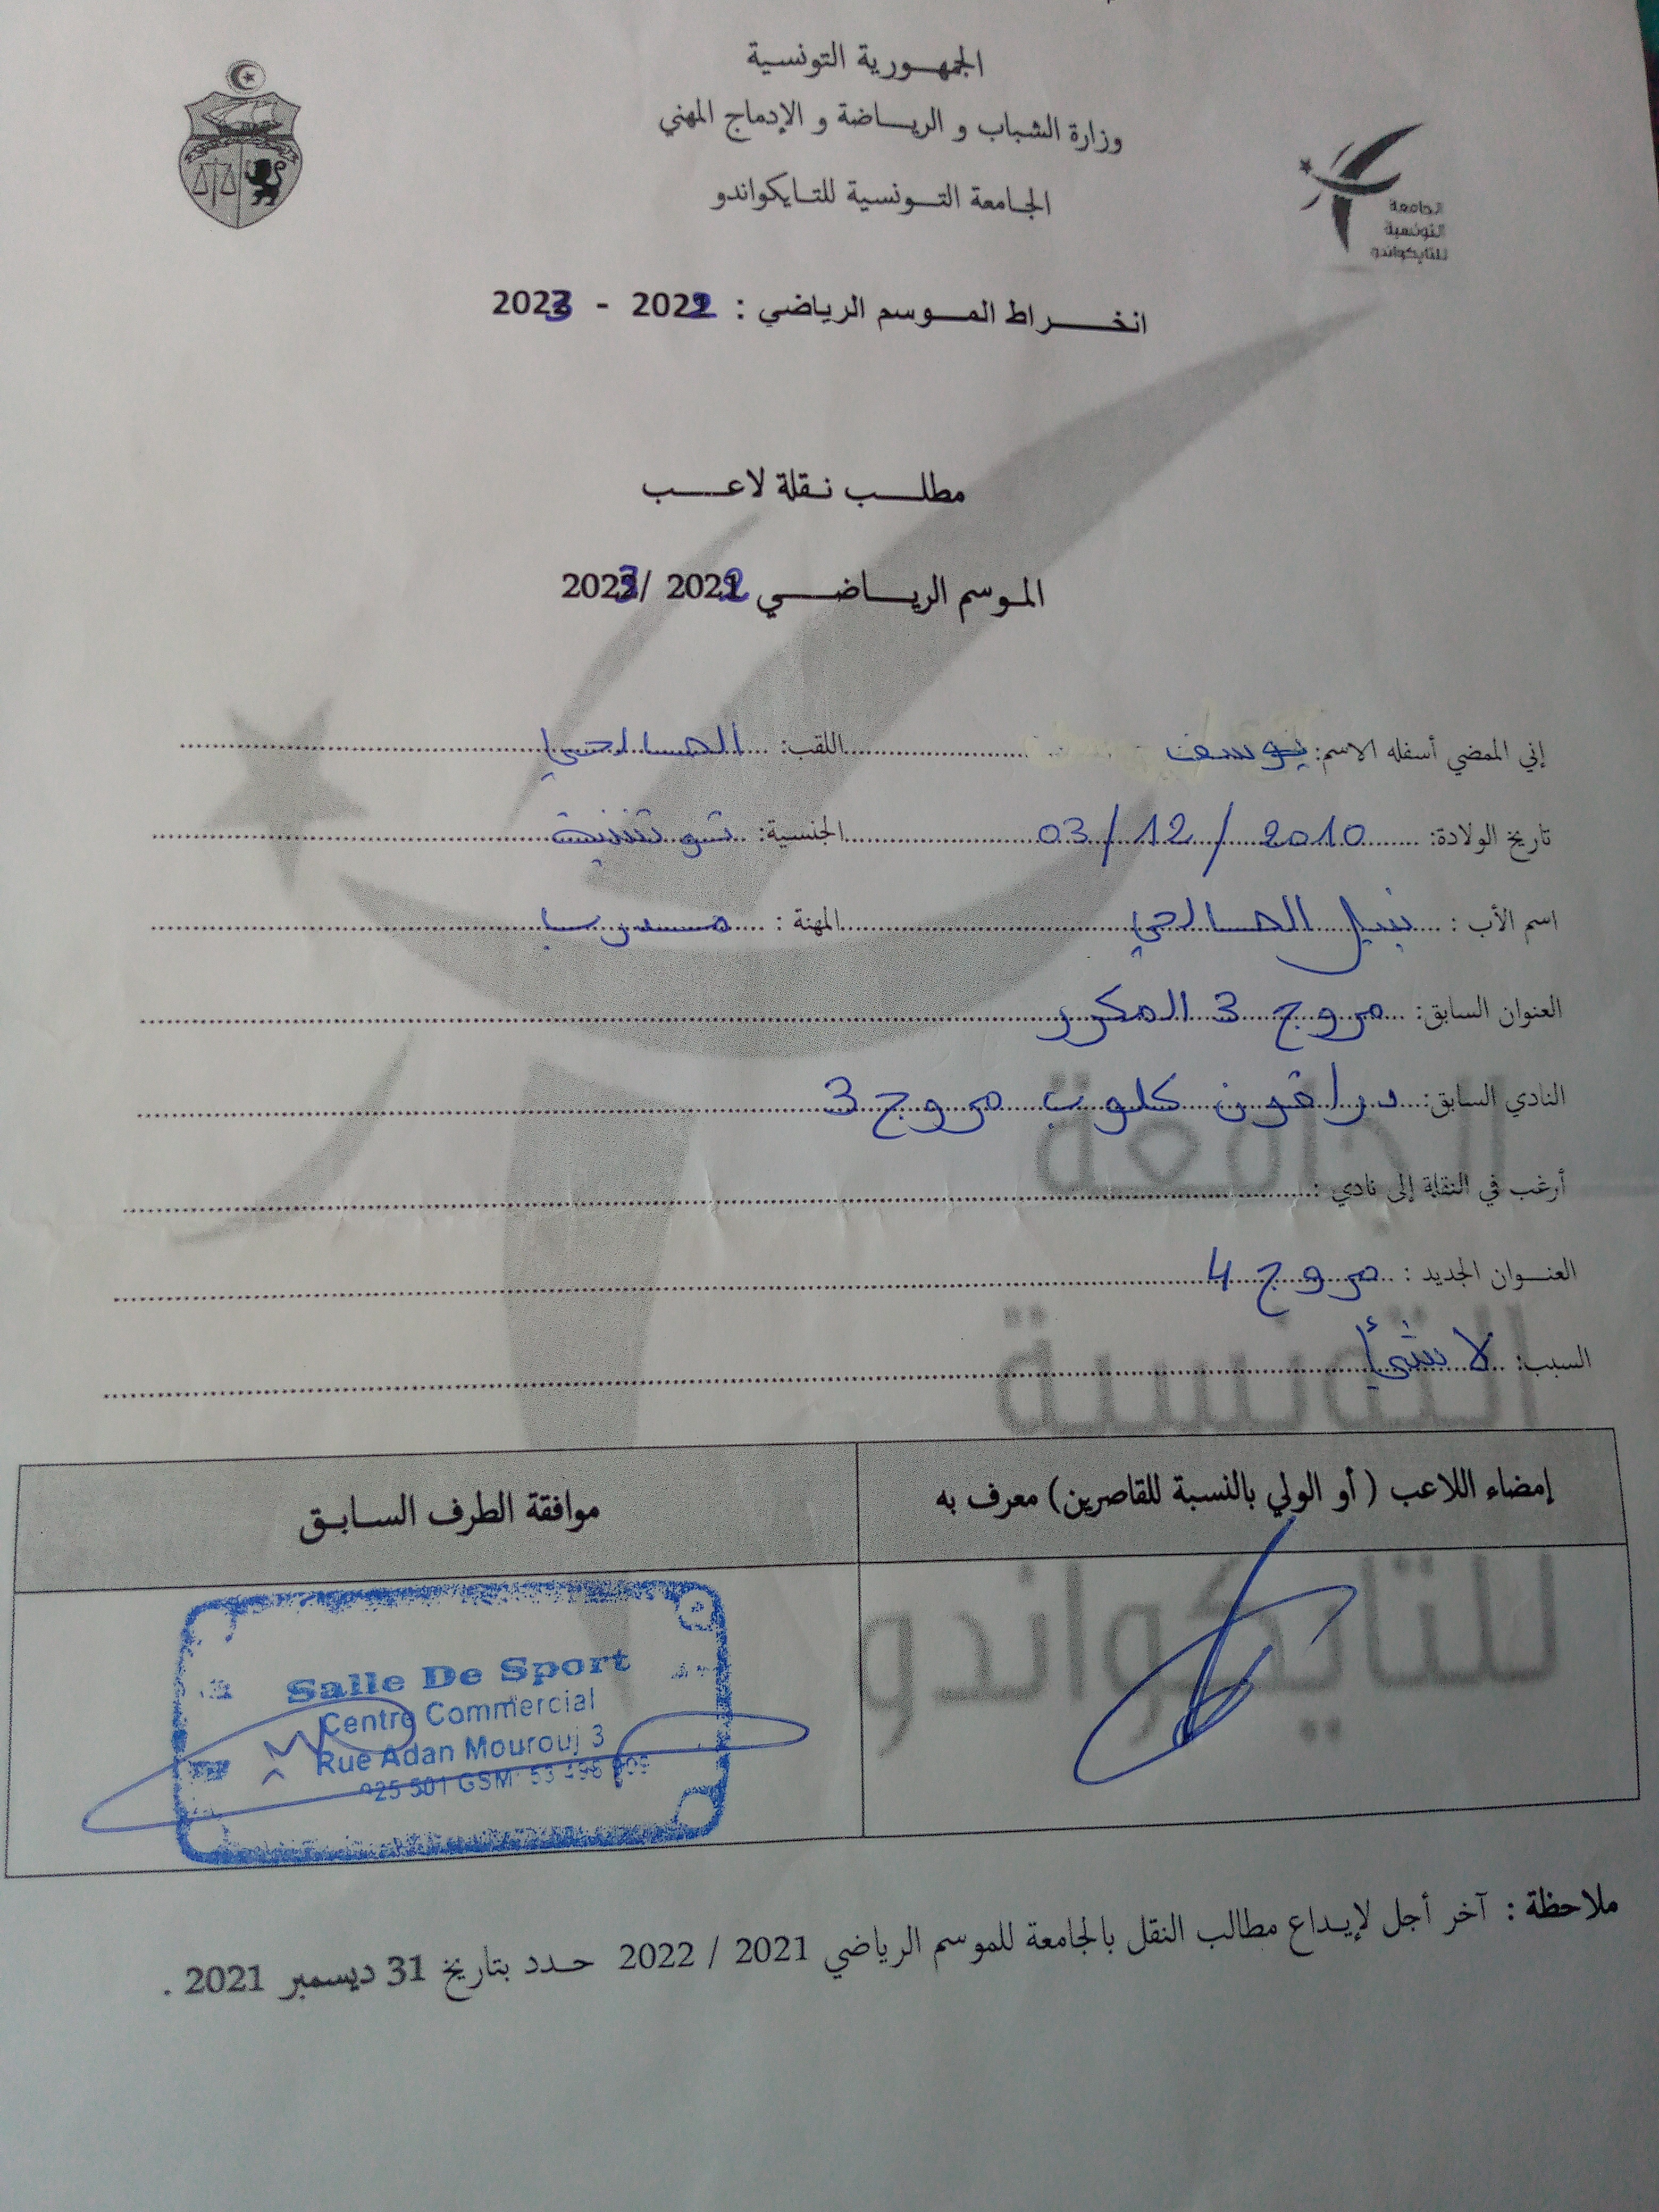 الجمهورية التونسية
وزارة الشباب و الرياضة و الإدماج المهني
الجامعة التونسية للتايكواندو
الجامعة
التونسية
للتايكواندو
انخراط الموسم الرياضي : 2022 - 2023
مطلب نقلة لاعب
الموسم الرياضي 2022 /2023
إني الممضي أسفله الاسم: يوسف اللقب: الصالحي
تاريخ الولادة: 03/12/2010 الجنسية: تونسية
اسم الأب : نبيل الصالحي المهنة : مدرب
العنوان السابق: مروج 3 المكرر
النادي السابق: دراقون كلوب مروج 3
أرغب في النقلة إلى نادي :
العنوان الجديد : مروج 4
السبب: لا شئ
إمضاء اللاعب ( أو الولي بالنسبة للقاصرين) معرف به
موافقة الطرف السابق
Salle De Sport
Centre Commercial
Rue Adan Mourouj 3
925 501 GSM: 53 496
ملاحظة : آخر أجل لإيداع مطالب النقل بالجامعة للموسم الرياضي 2021 / 2022 حدد بتاريخ 31 ديسمبر 2021 .